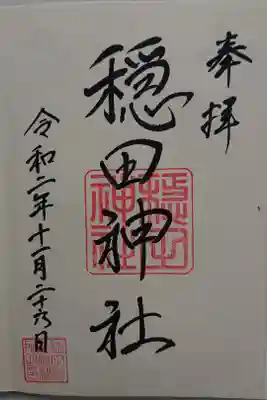 奉拝
穏田神社
令和二年十一月二十六日
穏田神社